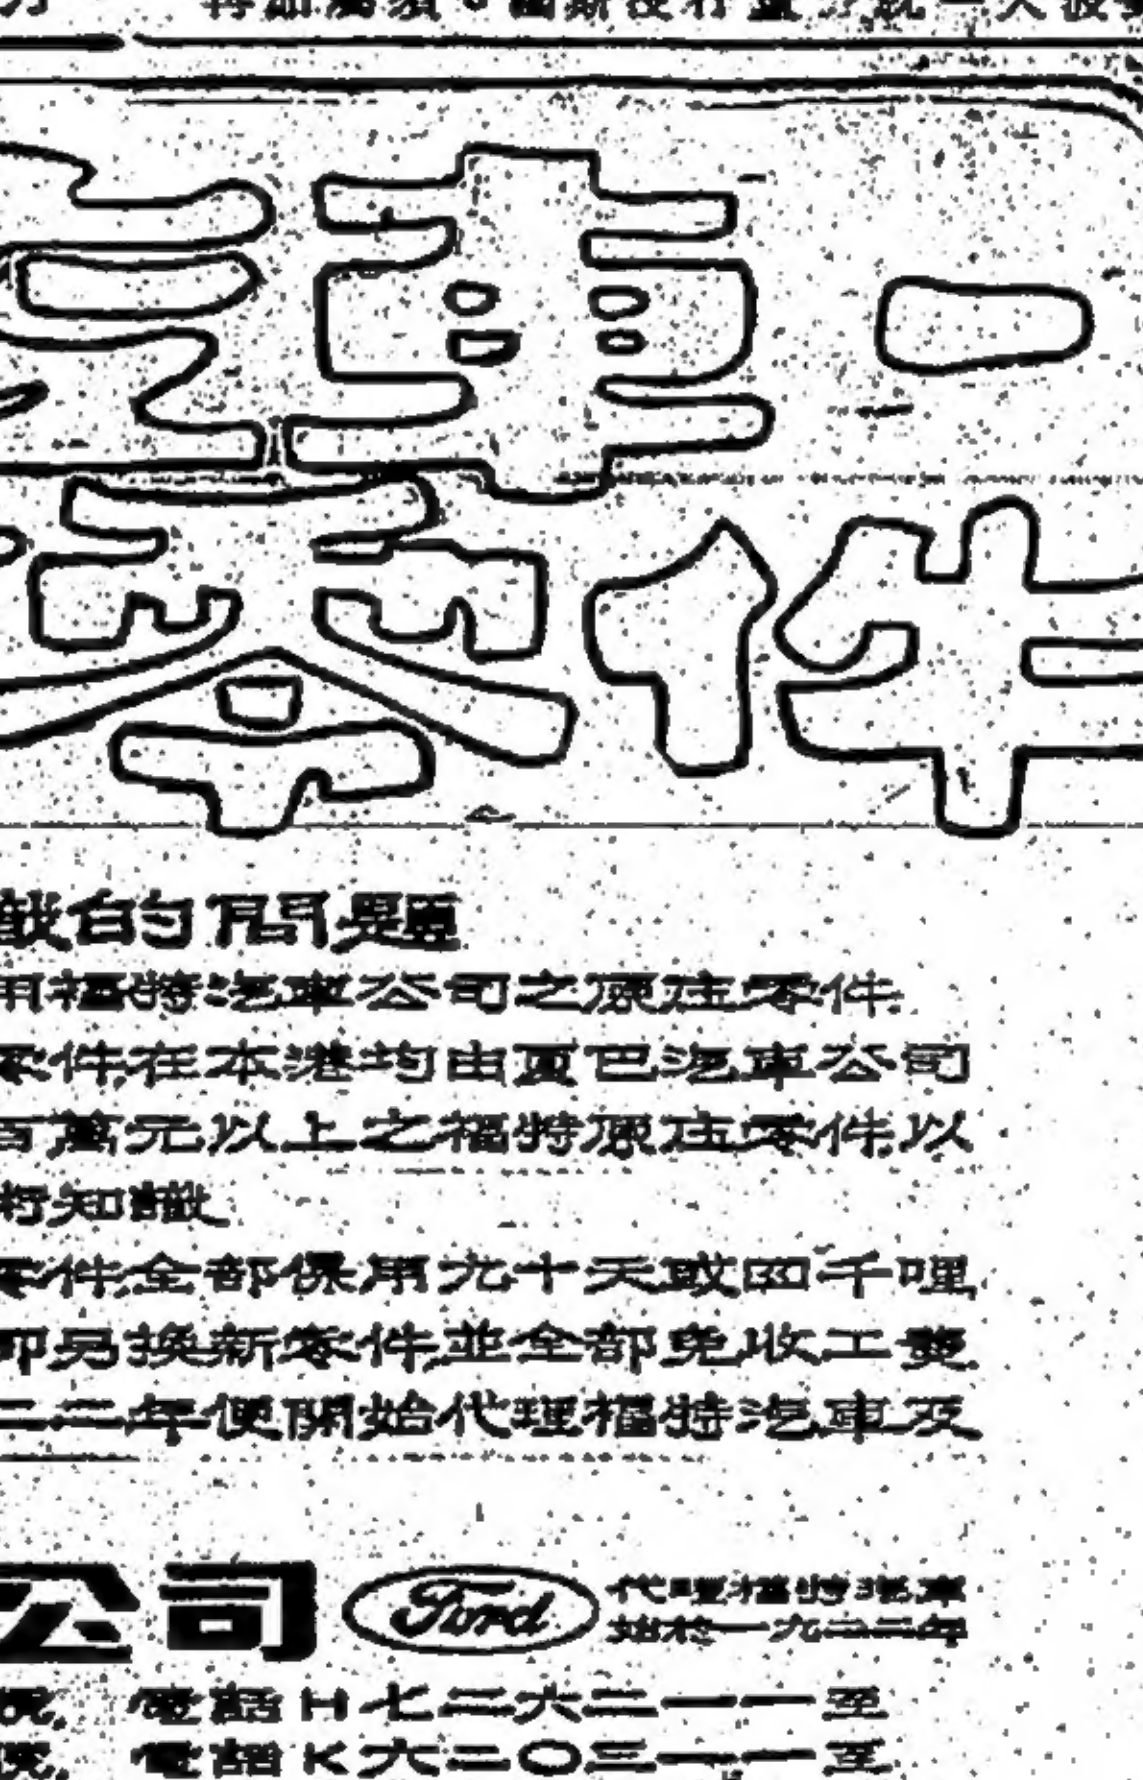 車一
零件
的問題
用福特汽車公司之原庄零件
零件在本港均由夏巴汽車公司
百萬元以上之福特原庄零件以
知識
零件全部保用九十天或四千哩
即另換新零件並全部免收工費
二二年便開始代理福特汽車及
公司 Ford 代理福特汽車
始於一九二二年
電話H七二六二一一至
電話K六二〇三一一至